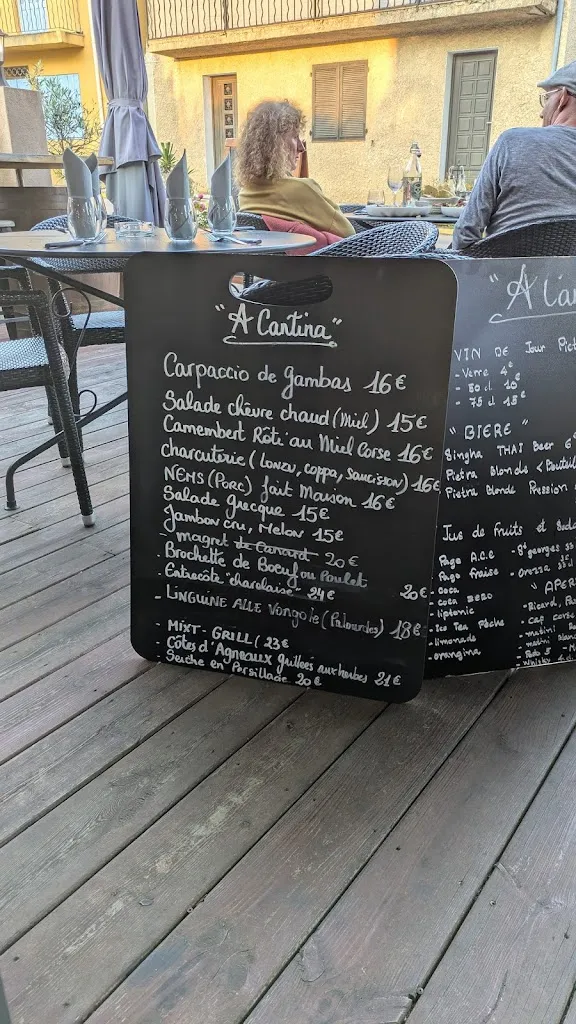 "A Cantina"
Carpaccio de gambas 16€
Salade chèvre chaud (Miel) 15€
Camembert Rôti au Miel Corse 16€
charcuterie (Lonzu, coppa, Saucisson) 16€
NEMS (Porc) fait Maison 16€
Salade grecque 15€
Jambon cru, Melon 15€
- magret de Canard 20€
- Brochette de Boeuf ou Poulet 20€
- Entrecôte charolaise 24€
- LINGUINE ALLE Vongole (Palourdes) 18€
- MIXT-GRILL ( 23€
- Côtes d'Agneaux grillées aux herbes 21€
- Seiche en Persillade 20€
"A Can
VIN DE Jour Pict
- Verre 4€
- 50 cl 10€
- 75 cl
"BIERE"
Singha THAI Beer 6€
Pietra Blonde < Bouteill
Pietra Blonde Pression
Jus de fruits et Soda
- Pago A.C.E
- Pago fraise
- coca
- coca zero
- liptonic
- Ice Tea Pêche
- limonade
- orangina
- St georges 33
- Orezza 33 cl
"APER
- Ricard, Pas
- Cap corse
- matini
- matini blanc
- Porto 5
- Whisky